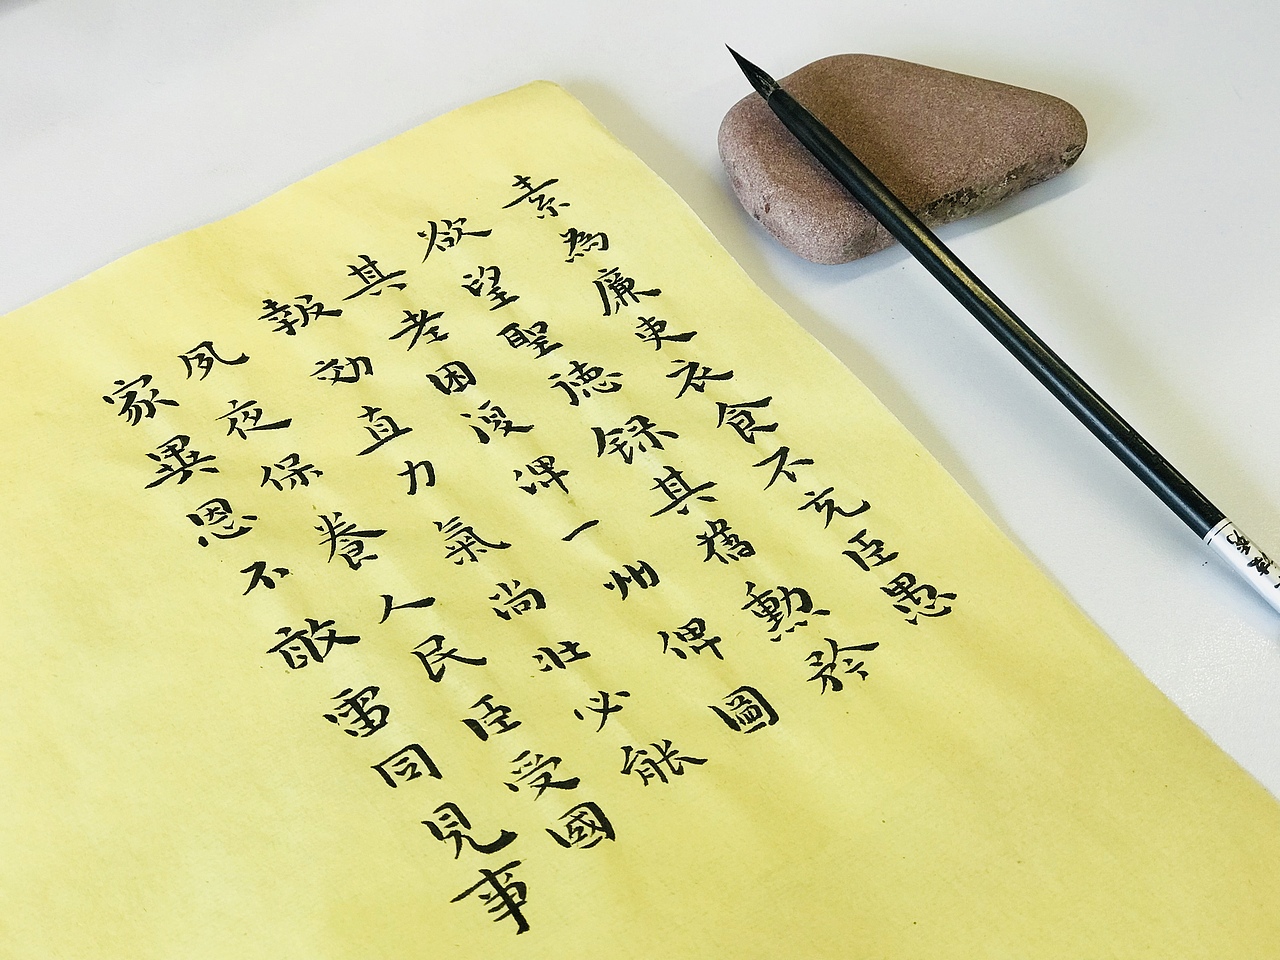 素為廉吏衣食不充臣愚
欲望聖徳録其舊勳矜
其老困復俾一州俾圖
報効直力氣尚壯必能
夙夜保養人民臣受國
家異恩不敢雷同見事